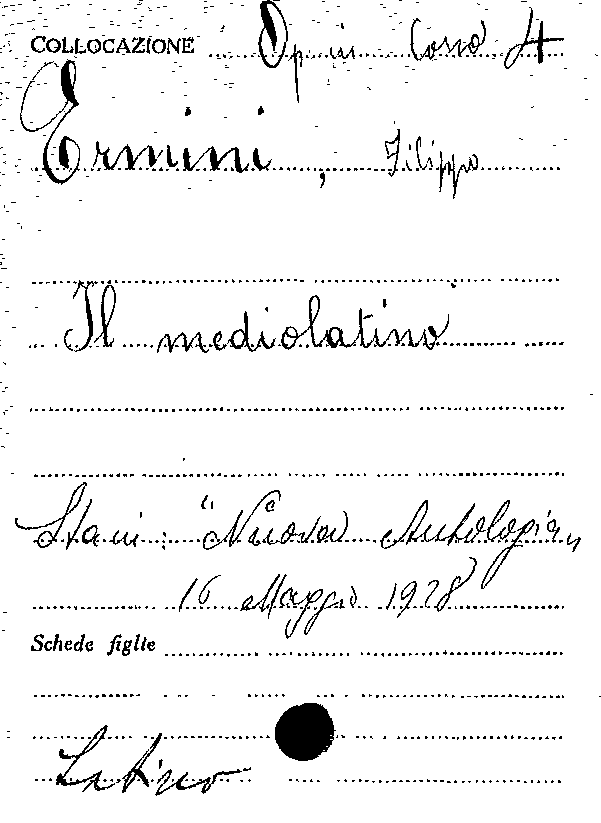 COLLOCAZIONE Op. in Corso 4
Ermini, Filippo
Il mediolatino
"Nuova Antologia"
16 Maggio 1928
Schede figlie
Latino